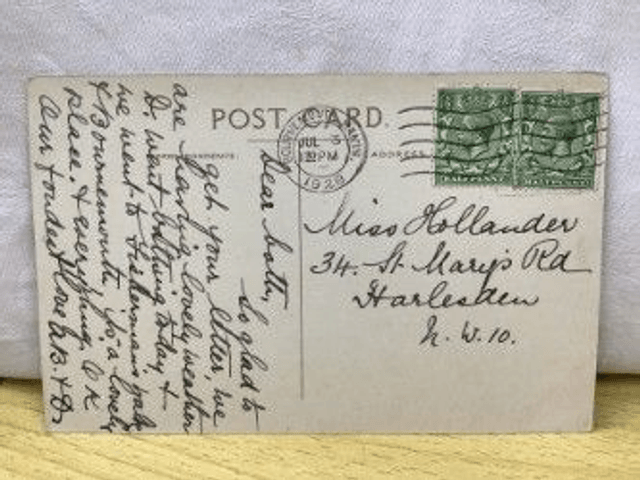 POST CARD.
ADDRESS
JUL 5
PM
1928
Dear
So glad to
get your letter, we
are having lovely weather
D. went bathing today, &
we went to Fisherman's
& Bournemouth is a lovely
place. & everything OK
Our fondest love B. & D.
Miss Hollander
34. St Mary's Rd
Harlesden
N.W.10.